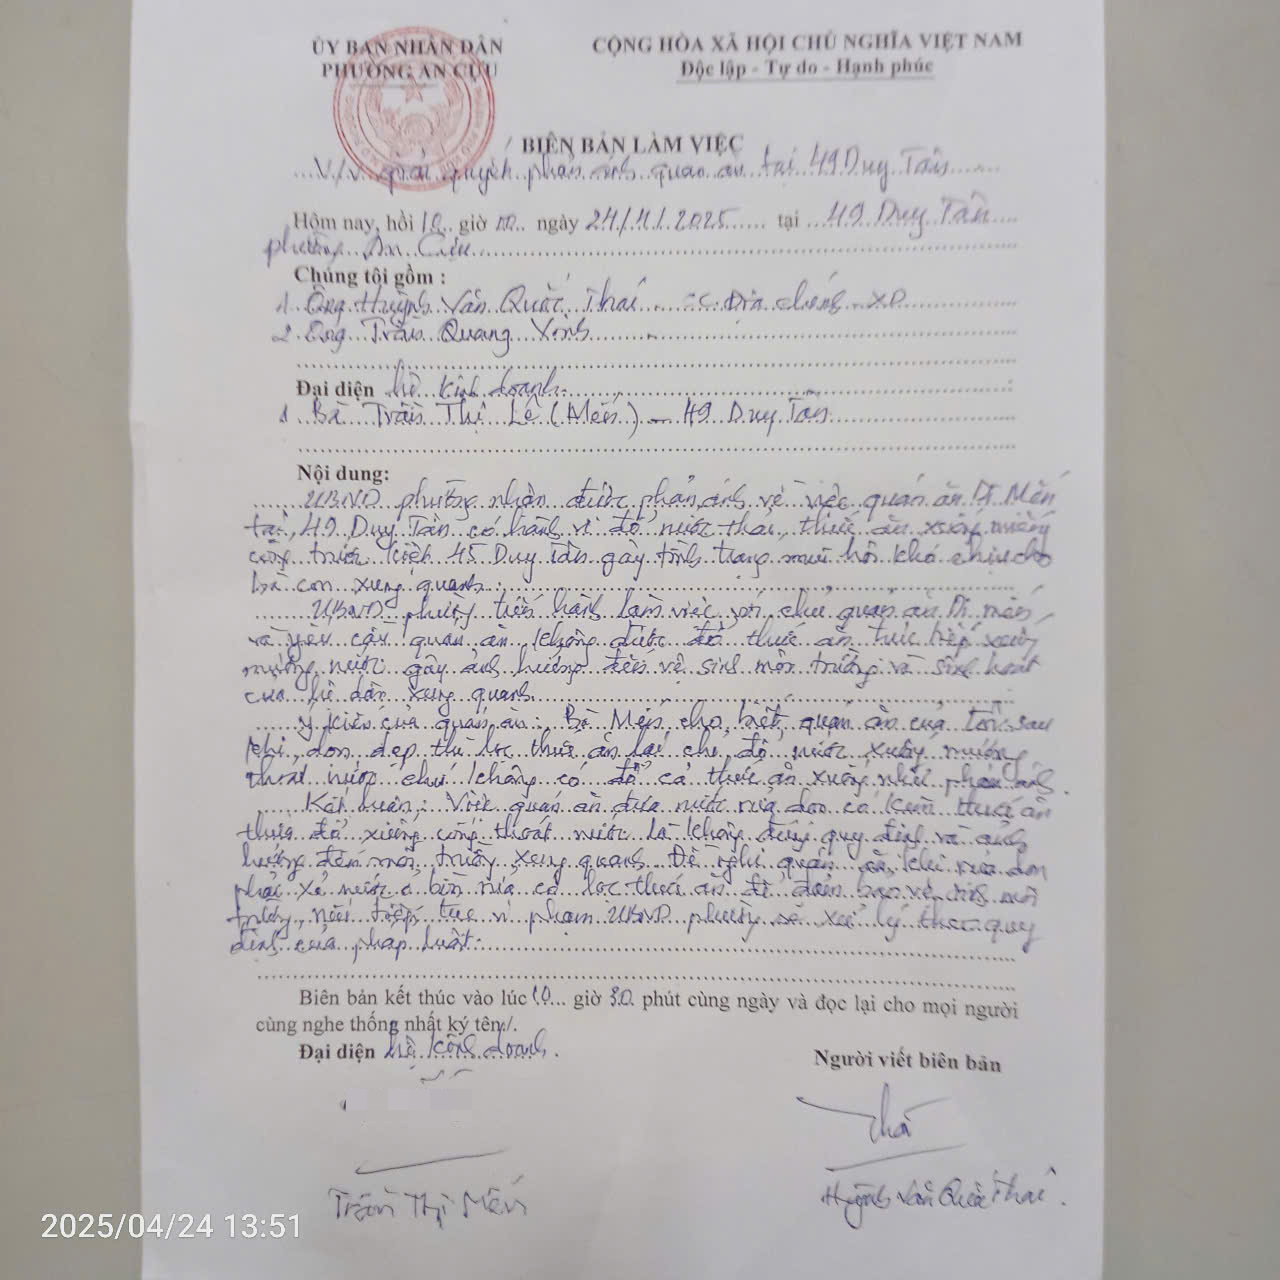 ỦY BAN NHÂN DÂN
PHƯỜNG AN CỰU
CỘNG HÒA XÃ HỘI CHỦ NGHĨA VIỆT NAM
Độc lập - Tự do - Hạnh phúc
BIÊN BẢN LÀM VIỆC
V/v giải quyết phản ánh quán ăn tại 49 Duy Tân
Hôm nay, hồi 10 giờ 00 ngày 24/4/2025 tại 49 Duy Tân
phường An Cựu
Chúng tôi gồm :
1. Ông Huỳnh Văn Quốc Thái - CC Địa chính - XD
2. Ông Trần Quang Vinh
Đại diện hộ kinh doanh
1. Bà Trần Thị Lê (Mến) - 49 Duy Tân
Nội dung:
UBND phường nhận được phản ánh về việc quán ăn Dì Mến
tại 49 Duy Tân có hành vi đổ nước thải, thức ăn xuống miệng
cống trước kiệt 45 Duy Tân gây tình trạng mùi hôi khó chịu cho
bà con xung quanh.
UBND phường tiến hành làm việc với chủ quán ăn Dì Mến
và yêu cầu quán ăn không được đổ thức ăn trực tiếp xuống
mương nước gây ảnh hưởng đến vệ sinh môi trường và sinh hoạt
của hộ dân xung quanh.
Ý kiến của quán ăn: Bà Mến cho biết quán ăn của tôi sau
khi dọn dẹp thì lọc thức ăn lại, chỉ đổ nước xuống mương
thoát nước chứ không có đổ cả thức ăn xuống như phản ánh.
Kết luận: Việc quán ăn đưa nước rửa dọn có kèm thức ăn
thừa đổ xuống cống thoát nước là không đúng quy định và ảnh
hưởng đến môi trường xung quanh. Đề nghị quán ăn khi rửa dọn
phải xả nước ở bồn rửa có lọc thức ăn để đảm bảo vệ sinh môi
trường, nếu tiếp tục vi phạm UBND phường sẽ xử lý theo quy
định của pháp luật.
Biên bản kết thúc vào lúc 10 giờ 30 phút cùng ngày và đọc lại cho mọi người
cùng nghe thống nhất ký tên./.
Đại diện hộ kinh doanh.
Người viết biên bản
Thái
Trần Thị Mến
Huỳnh Văn Quốc Thái
2025/04/24 13:51